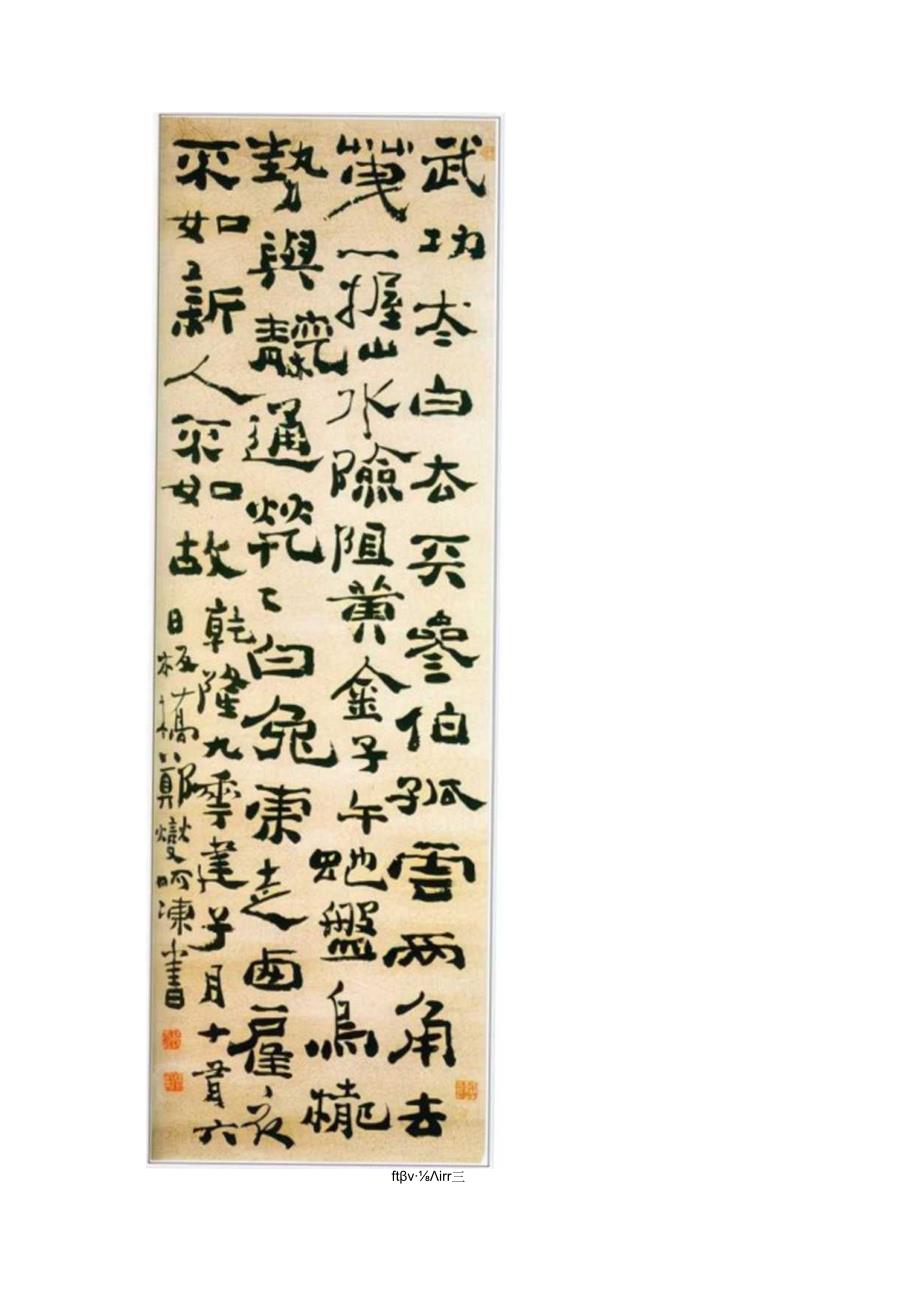 武功太白去天叄伯孤雲兩角去
一握山水險阻黃金子午虵盤烏櫳
勢與靝通煢〻白兔東走西雇衣
不如新人不如故乾隆九年建子月十有六
日板橋鄭燮呵凍書
ftβv·⅛Λirr三